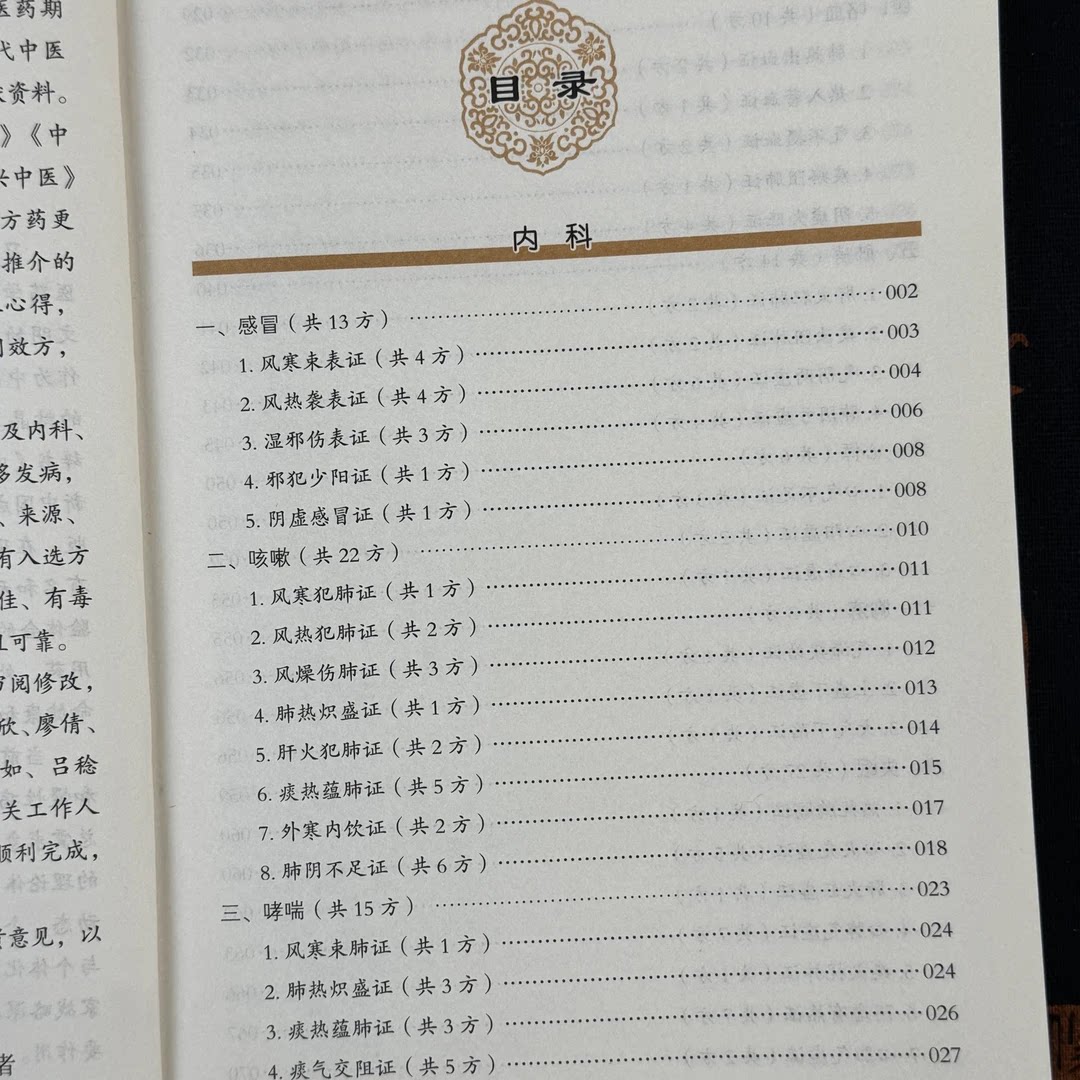 医药期
代中医
资料。
》《中
兴中医》
方药更
推介的
心得,
效方,
及内科、
多发病,
、来源、
有入选方
佳、有毒
可靠。
审阅修改,
欣、廖倩、
如、吕稔
关工作人
顺利完成,
意见,以
者
目录
内科
一、感冒(共13方)……002
1. 风寒束表证(共4方)……003
2. 风热袭表证(共4方)……004
3. 湿邪伤表证(共3方)……006
4. 邪犯少阳证(共1方)……008
5. 阴虚感冒证(共1方)……008
二、咳嗽(共22方)……010
1. 风寒犯肺证(共1方)……011
2. 风热犯肺证(共2方)……011
3. 风燥伤肺证(共3方)……012
4. 肺热炽盛证(共1方)……013
5. 肝火犯肺证(共2方)……014
6. 痰热蕴肺证(共5方)……015
7. 外寒内饮证(共2方)……017
8. 肺阴不足证(共6方)……018
三、哮喘(共15方)……023
1. 风寒束肺证(共1方)……024
2. 肺热炽盛证(共3方)……024
3. 痰热蕴肺证(共3方)……026
4. 痰气交阻证(共5方)……027